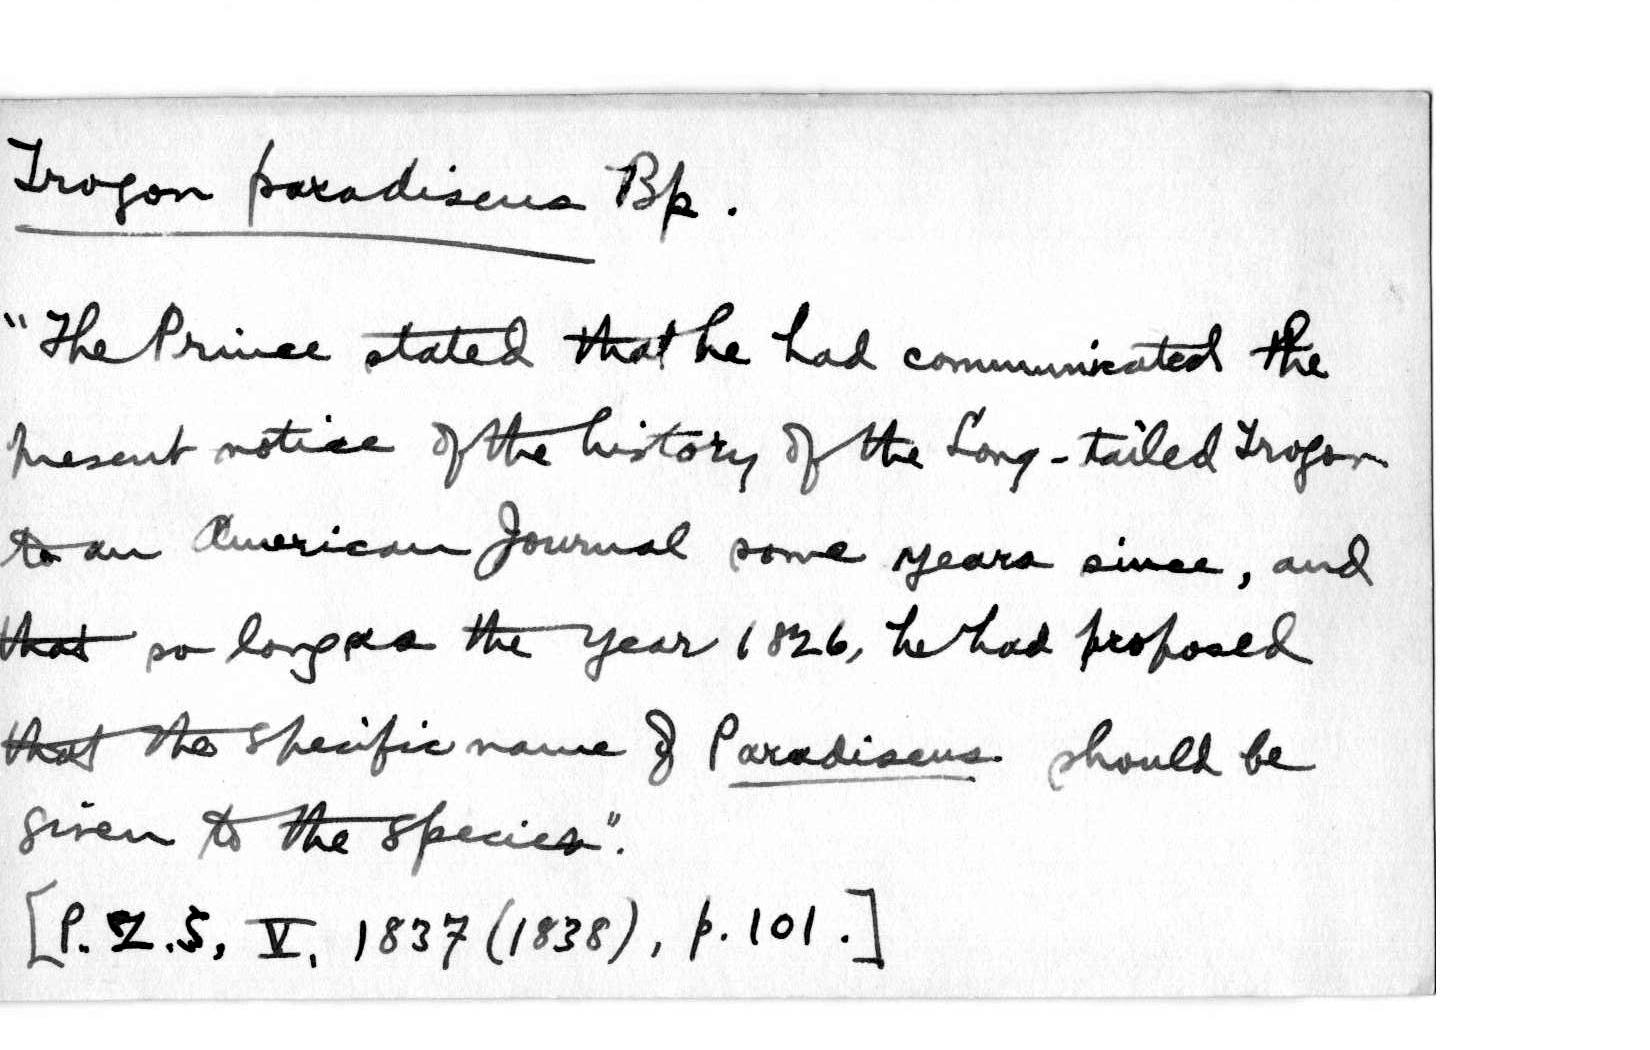 Trogon paradiseus Bp.
"The Prince stated that he had communicated the
present notice of the history of the Long-tailed Trogon
to an American Journal some years since, and
that so long as the year 1826, he had proposed
that the specific name of Paradiseus should be
given to the species".
[P.Z.S, V, 1837 (1838), p. 101.]